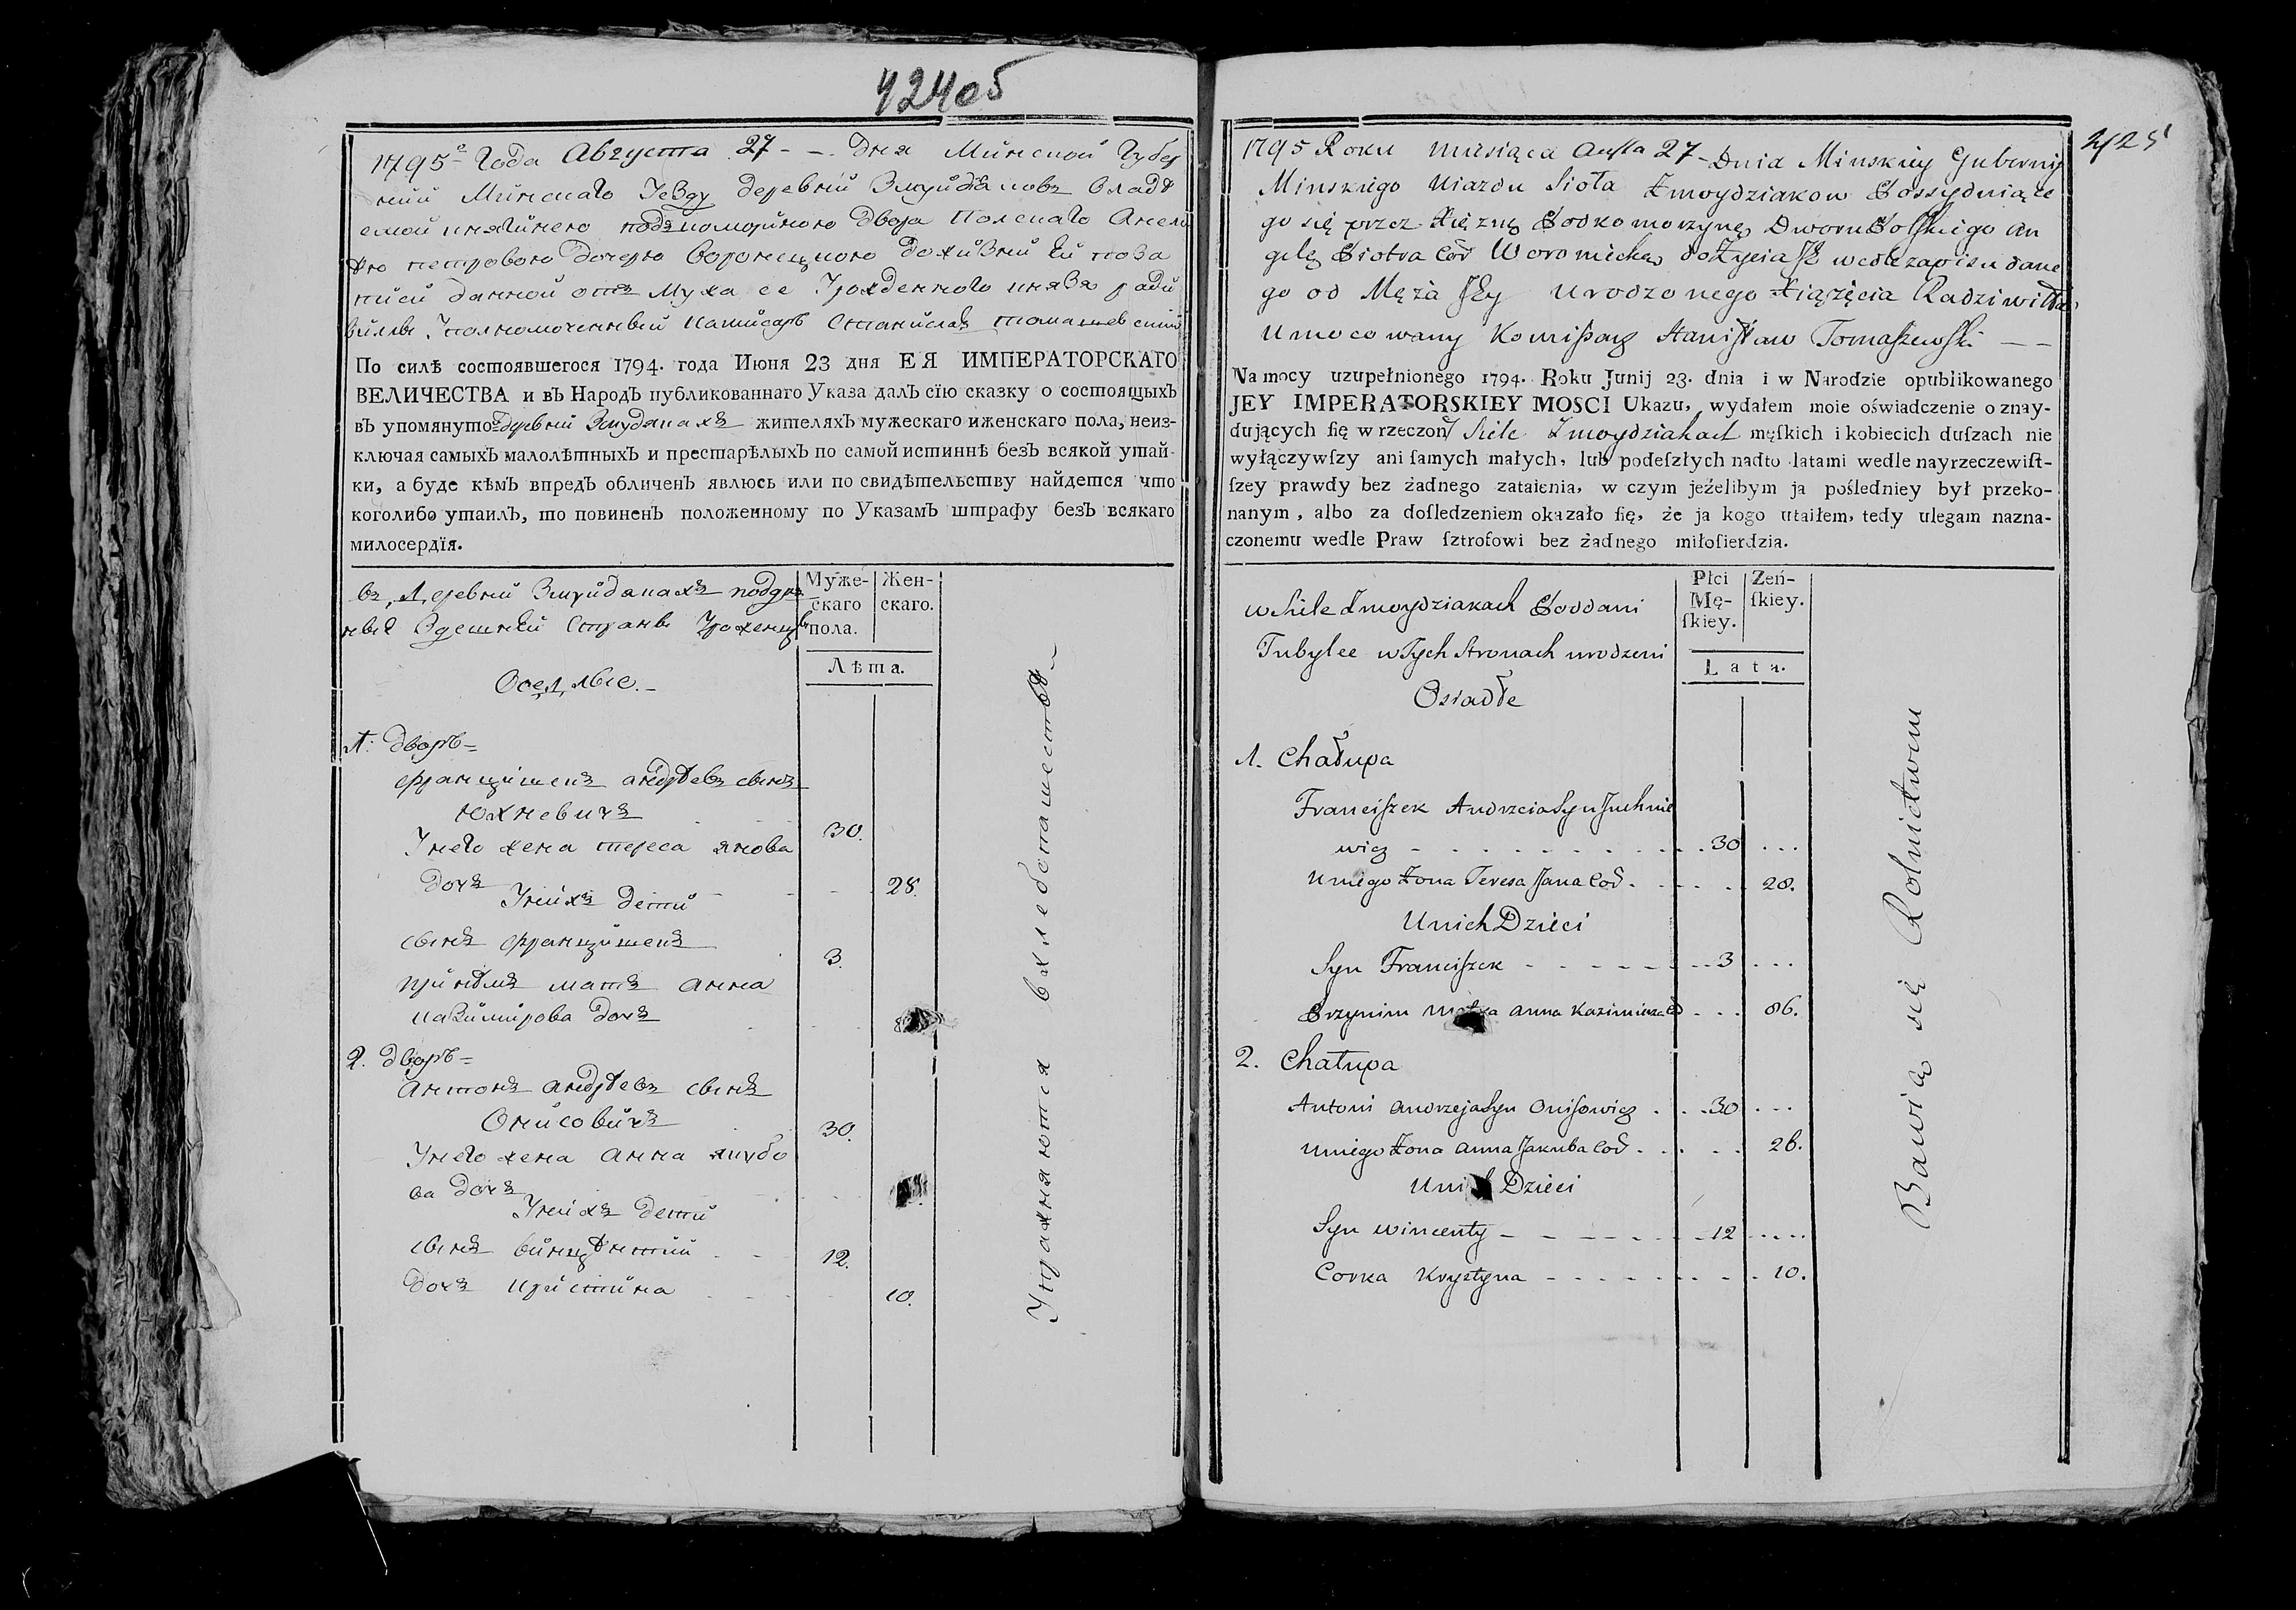 424об
1795го года Августа 27 - - дня Минской Губер
нии Минского уезду деревни Змуйдяковъ владѣ
емой княгинею подкомориною двора Полскаго Анеле
ею петровою дочерью Воронецкою дожизни ей по за
писи данной отъ мужа ее урожденного князя ради
вилы уполномоченный комисаръ Станиславъ томашевский
По силѣ состоявшегося 1794. года Июня 23 дня ЕЯ ИМПЕРАТОРСКАГО
ВЕЛИЧЕСТВА и въ Народъ публикованнаго Указа далъ сїю сказку о состоящыхъ
въ упомянутой деревни Змудяках жителяхъ мужескаго иженскаго пола, неиз-
ключая самыхъ малолѣтныхъ и престарѣлыхъ по самой истиннѣ безъ всякой утай-
ки, а буде кѣмъ впредъ обличенъ явлюсь или по свидѣтельству найдется что
коголибо утаилъ, то повиненъ положенному по Указамъ штрафу безъ всякаго
милосердїя.
въ деревни Змуйдякахъ поддан
ные здешней страны уроженцы
Муже-
скаго
пола.
Жен-
скаго.
Лѣта.
Оседлые. -
1: дворъ =
францишекъ андрѣевъ сынъ
Юхневичъ 30.
У него жена тереса янова
дочъ 28.
У нихъ дети
сынъ францишекъ 3.
при нѣмъ матъ анна
казимирова дочъ
2. дворъ =
антонъ андрѣевъ сынъ
Онисовичъ 30.
У него жена анна якубо
ва дочъ
У нихъ дети
сынъ винцѣнтий 12.
дочъ кристина 10.
Упражняются в хлебопашестве. -
425
1795 Roku miesiąca Augsta 27 - Dnia Minskiey Gubernij
Minskiego Uiazdu Sioła Żmoydziakow Possyduiące
go się przez Xiężnę Podkomorzynę Dworu Polskiego An
gelę Piotra Cor Woroniecką do Życia JE wedle zapisu dane
go od Męża JEy urodzonego Xiążęcia Radziwiłła
Umocowany Komisarz Stanisław Tomaszewski - -
Na mocy uzupełnionego 1794. Roku Junij 23. dnia i w Narodzie opublikowanego
JEY IMPERATORSKIEY MOSCI Ukazu, wydałem moie oświadczenie o znay-
dujących ſię w rzeczony Siele Żmoydziakach męſkich i kobiecich duſzach nie
wyłączywſzy ani ſamych małych, lub podeſzłych nadto latami wedle nayrzeczewiſt-
ſzey prawdy bez żadnego zataienia, w czym jeżelibym ja pośledniey był przeko-
nanym, albo za doſledzeniem okazało ſię, że ja kogo utaiłem, tedy ulegam nazna-
czonemu wedle Praw ſztrofowi bez żadnego miłoſierdzia.
w Siele Żmoydziakach Poddani
Tubylce w Tych Stronach urodzeni
Płci
Mę-
ſkiey.
Żeń-
ſkiey.
Lata.
Osiadłe
1. Chałupa
Franciszek Andrzeia Syn Juchnie
wicz - - - 30 ...
U niego Żona Teresa Jana Cor. - - 28.
U nich Dzieci
Syn Franciszek - - - 3 ...
Przy nim Matka Anna Kazimierza Co ... 86.
2. Chałupa
Antoni Andrzeja Syn Onisowicz . . 30 ...
U niego Żona Anna Jakuba Cor. . . 26.
U nich Dzieci
Syn Wincenty - - - 12 ....
Corka Krystyna - - - 10.
Bawią się Rolnictwem